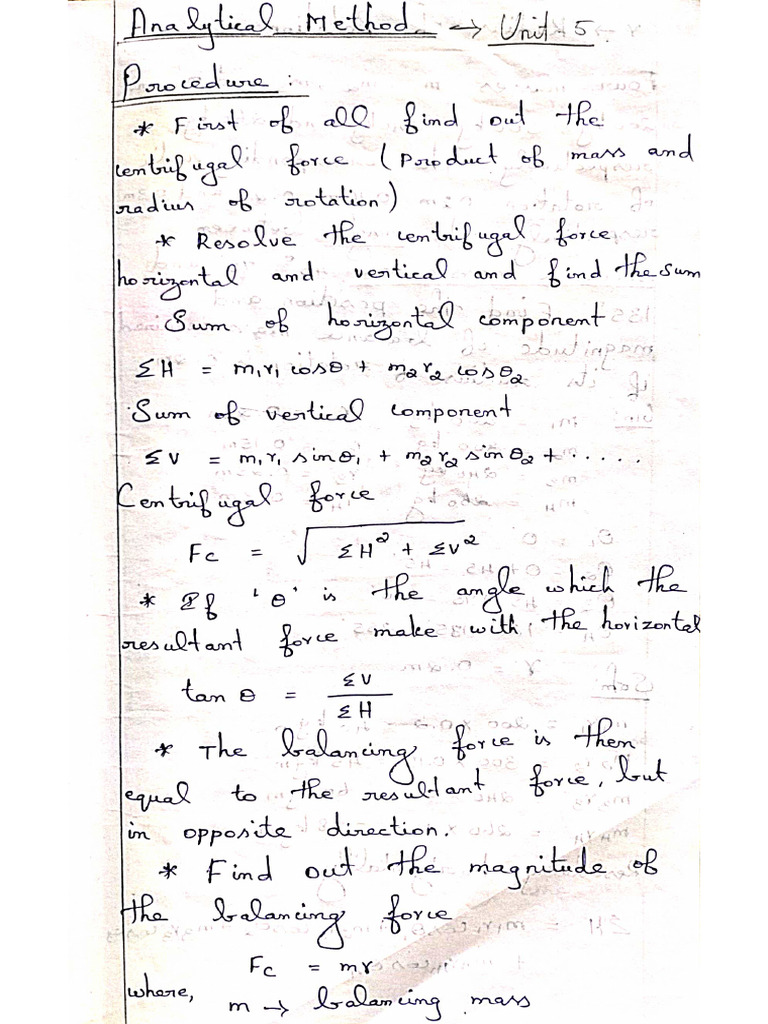 Analytical Method → Unit 5
Procedure :
* First of all find out the
centrifugal force ( Product of mass and
radius of rotation )
* Resolve the centrifugal force
horizontal and vertical and find the sum
Sum of horizontal component
ΣH = m₁r₁ cosθ + m₂r₂ cosθ₂
Sum of vertical component
ΣV = m₁r₁ sinθ₁ + m₂r₂ sinθ₂ + .....
Centrifugal force
Fc = √ΣH² + ΣV²
* If 'θ' is the angle which the
resultant force make with the horizontal
tan θ = ΣV / ΣH
* The balancing force is then
equal to the resultant force, but
in opposite direction.
* Find out the magnitude of
the balancing force
Fc = mr
where,
m → balancing mass